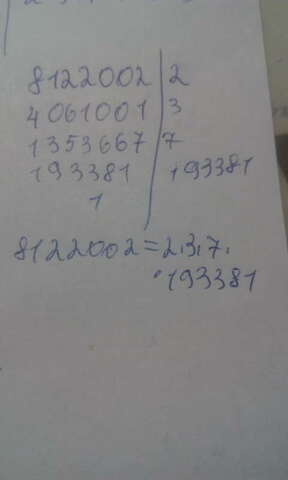 8122002 | 2
4061001 | 3
1353667 | 7
193381 | 193381
1
8122002=2.3.7.
.193381